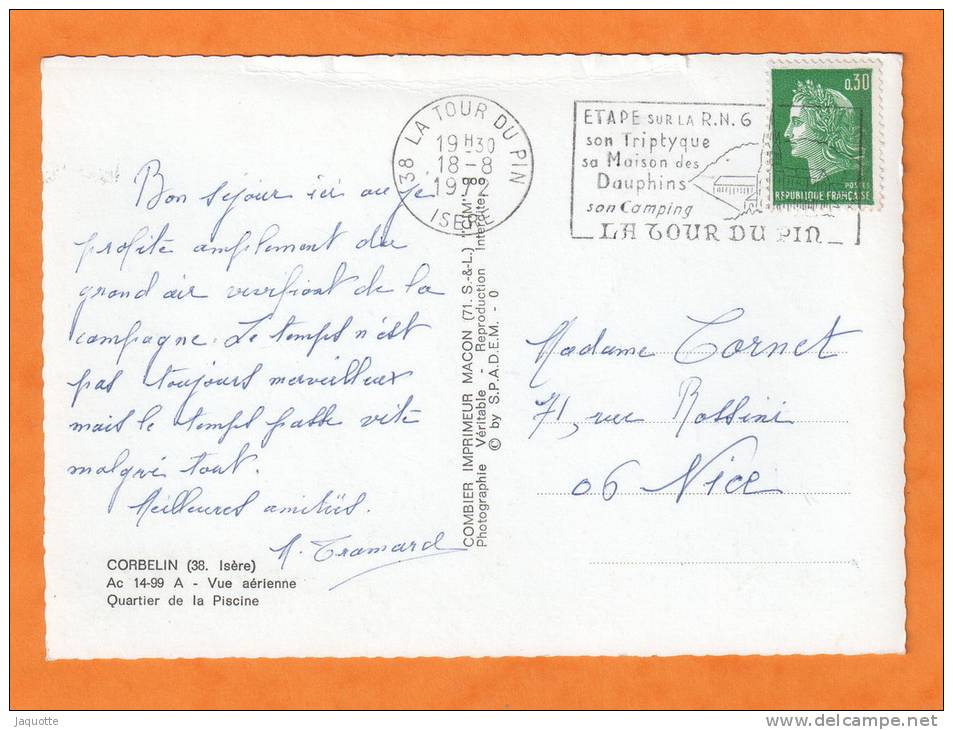 38 LA TOUR DU PIN
19H30
18-8
ISERE
ETAPE SUR LA R.N. 6
son Triptyque
sa Maison des
Dauphins
son Camping
LA TOUR DU PIN
0,30
POSTES
REPUBLIQUE FRANÇAISE
Bon séjour ici où je
profite amplement du
grand air vivifiant de la
campagne. Le temps n'est
pas toujours merveilleux
mais le temps passe vite
malgré tout.
Meilleures amitiés.
M. Tramard
CORBELIN (38. Isère)
Ac 14-99 A - Vue aérienne
Quartier de la Piscine
COMBIER IMPRIMEUR MACON (71. S.-&-L.) "CIM"
Photographie Véritable - Reproduction Interdite
© by S.P.A.D.E.M. - 0
Madame Cornet
71, rue Rossini
06 Nice
Jaquotte
www.delcampe.net